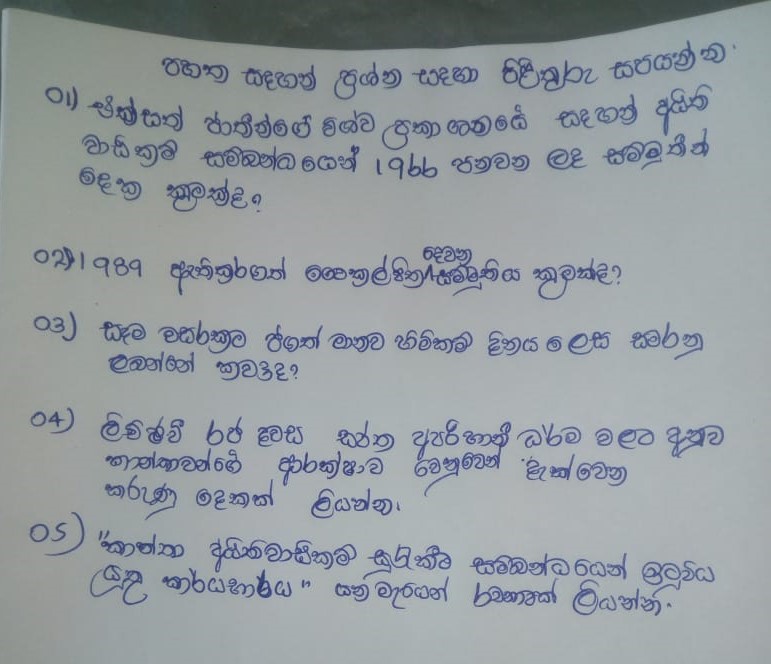 පහත සඳහන් ප්‍රශ්න සඳහා පිළිතුරු සපයන්න.
01) එක්සත් ජාතීන්ගේ විශ්ව ප්‍රකාශනයේ සඳහන් අයිති
වාසිකම් සම්බන්ධයෙන් 1966 පනවන ලද සම්මුතීන්
දෙක කුමක්ද?
02) 1989 ඇතිකරගත් වෛකල්පිත දෙවන සම්මුතිය කුමක්ද?
03) සෑම වසරකම ජගත් මානව හිමිකම් දිනය ලෙස සමරනු
ලබන්නේ කවදාද?
04) ලිච්ඡවි රජ දවස සප්ත අපරිහානි ධර්ම වලට අනුව
කාන්තාවන්ගේ ආරක්ෂාව වෙනුවෙන් දැක්වෙන
කරුණු දෙකක් ලියන්න.
05) "කාන්තා අයිතිවාසිකම් සුරැකීම සම්බන්ධයෙන් ඉටුවිය
යුතු කාර්යභාරය" යන මැයෙන් රචනයක් ලියන්න.